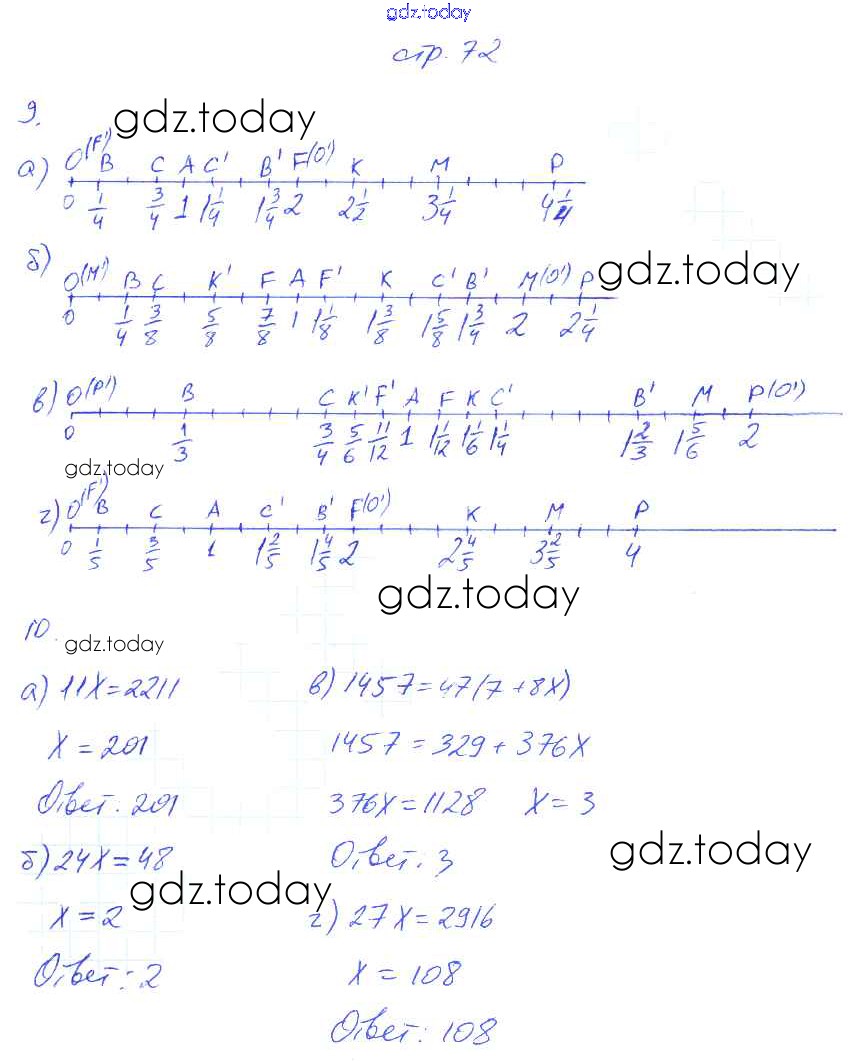 gdz.today
стр. 72
9. gdz.today
а) O(F') B C A C' B' F(O') K M P
0 1/4 3/4 1 1 1/4 1 3/4 2 2 1/2 3 1/4 4 1/4
б) O(M') B C K' F A F' K C' B' M(O') P
gdz.today
0 1/4 3/8 5/8 7/8 1 1 1/8 1 3/8 1 5/8 1 3/4 2 2 1/4
в) O(P') B C K' F' A F K C' B' M P(O')
0 1/3 3/4 5/6 11/12 1 1 1/12 1 1/6 1 1/4 1 2/3 1 5/6 2
gdz.today
г) O(F') B C A C' B' F(O') K M P
0 1/5 3/5 1 1 2/5 1 4/5 2 2 4/5 3 2/5 4
gdz.today
10. gdz.today
а) 11x=2211
x = 201
Ответ: 201
б) 24x=48
gdz.today
x = 2
Ответ: 2
в) 1457=47(7+8x)
1457 = 329 + 376x
376x=1128 x = 3
Ответ: 3
gdz.today
г) 27x=2916
x = 108
Ответ: 108